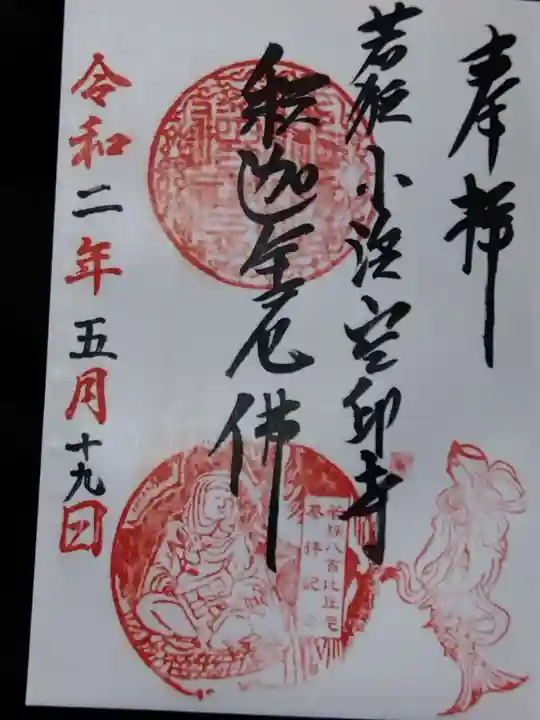 奉拝
若狭小浜空印寺
釈迦牟尼佛
八百比丘尼
拝記
令和二年五月十九日